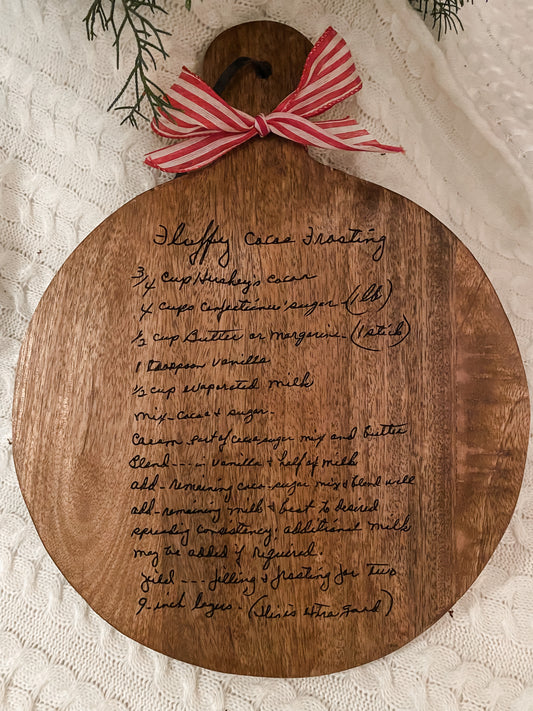 Fluffy Cocoa Frosting
3/4 cup Hershey's cocoa
4 cups confectioners' sugar (1 lb)
1/2 cup Butter or Margarine - (1 stick)
1 teaspoon vanilla
1/2 cup evaporated milk
mix - cocoa & sugar -
Cream - part of cocoa sugar mix and butter
Blend --- in vanilla & half of milk
add - remaining coco - sugar mix & blend well
add - remaining milk & beat to desired
spreading consistency. additional milk
may be added if required.
yield --- filling & frosting for two
9-inch layers - (This is extra good)